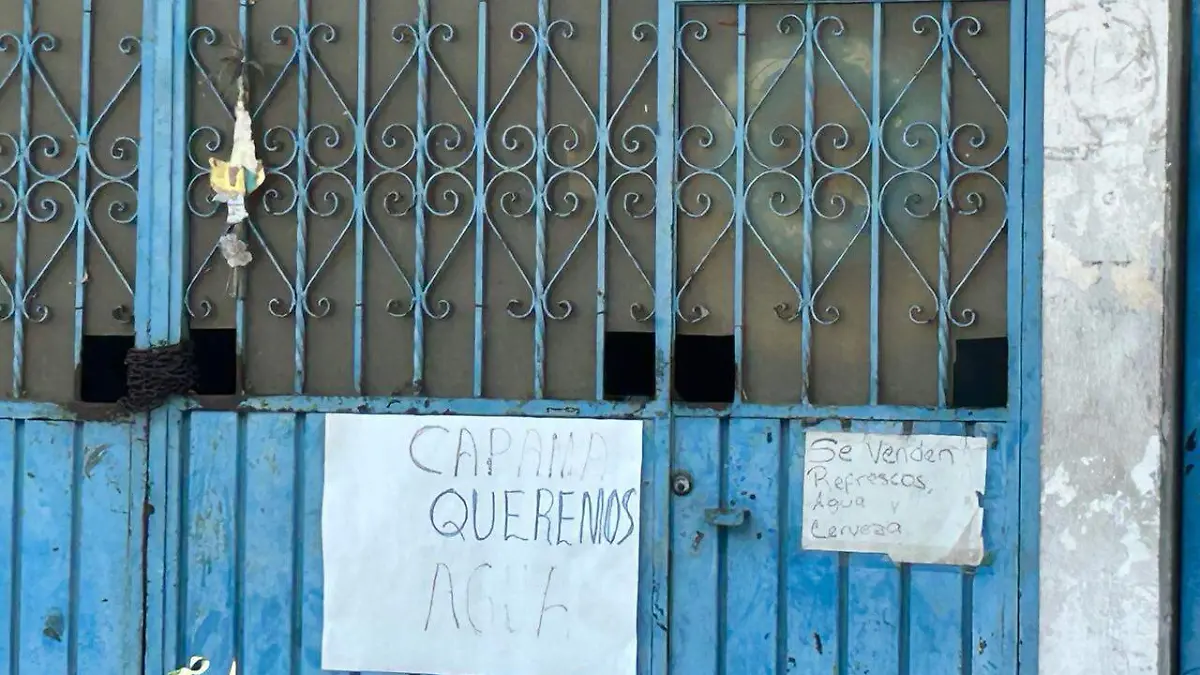 CAPAMA
QUEREMOS
AGUA
Se Venden
Refrescos,
Agua y
Cerveza